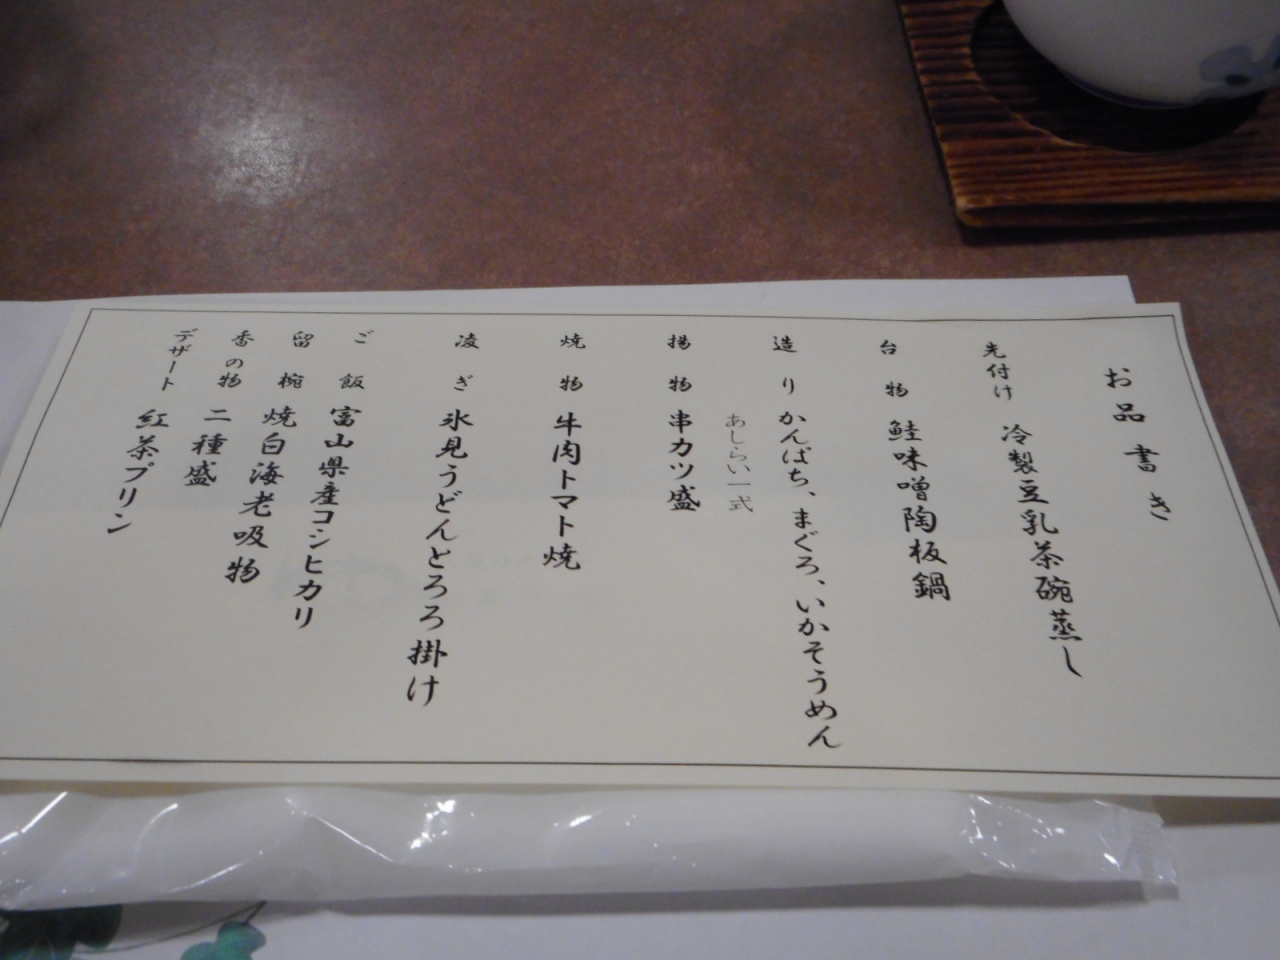 お品書き
先付け 冷製豆乳茶碗蒸し
台物 鮭味噌陶板鍋
造り かんぱち、まぐろ、いかそうめん
あしらい一式
揚物 串カツ盛
焼物 牛肉トマト焼
凌ぎ 氷見うどんとろろ掛け
ご飯 富山県産コシヒカリ
留椀 焼白海老吸物
香の物 二種盛
デザート 紅茶プリン